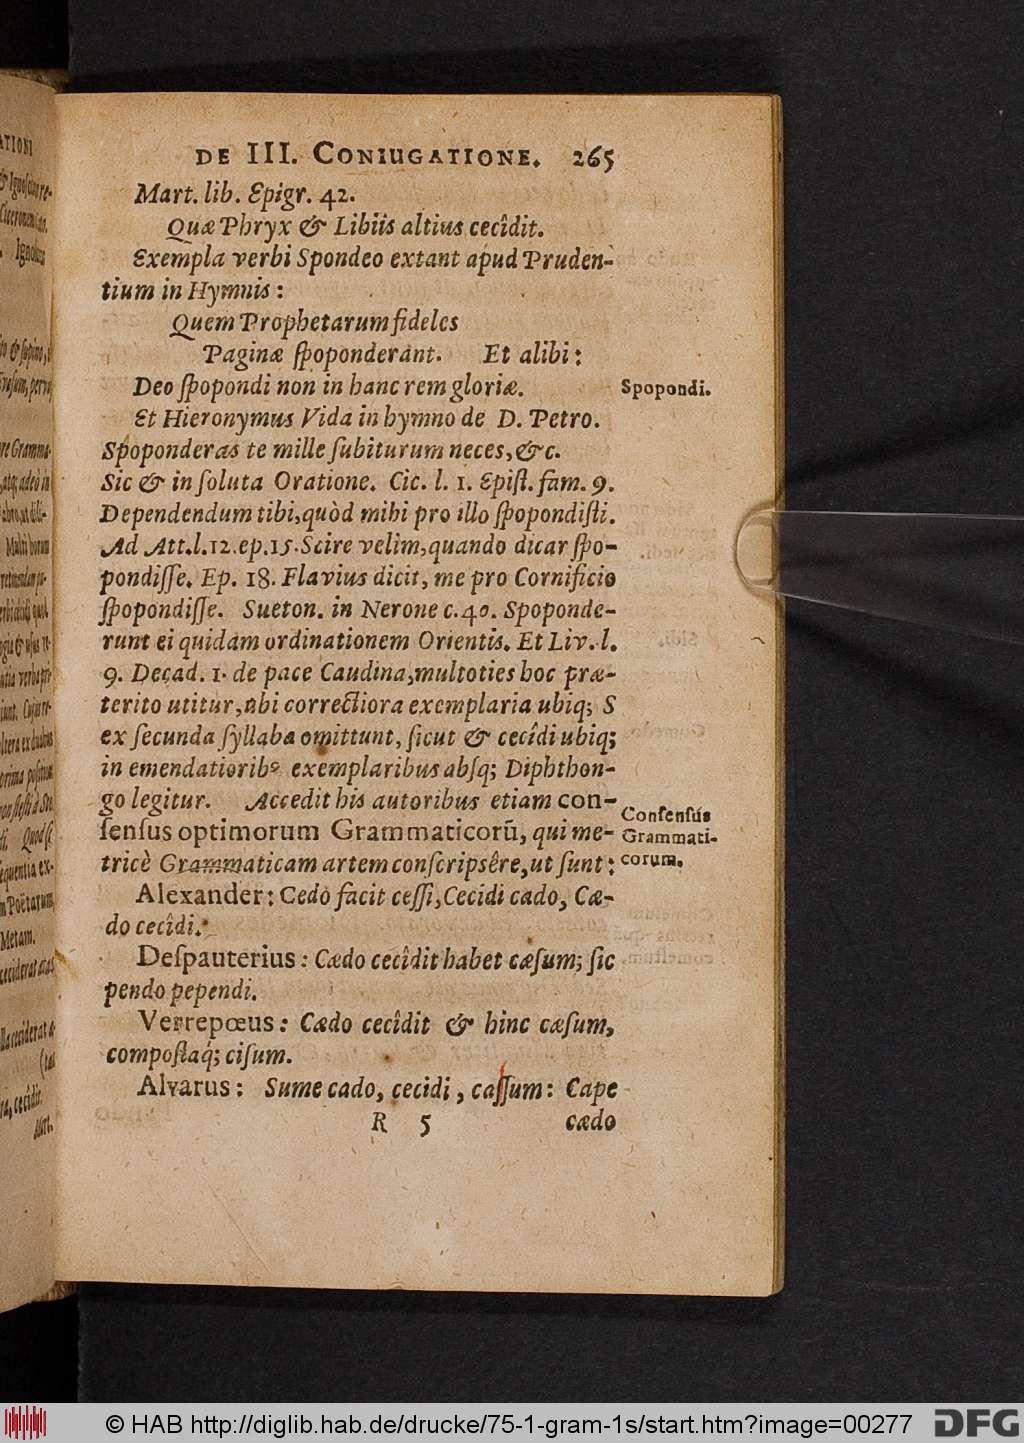 DE III. CONIUGATIONE. 265
Mart. lib. Epigr. 42.
Quæ Phryx & Libÿs altius cecîdit.
Exempla verbi Spondeo extant apud Pruden-
tium in Hymnis:
Quem Prophetarum fideles
Paginæ ſpoponderant. Et alibi:
Deo ſpopondi non in hanc rem gloriæ.
Spopondi.
Et Hieronymus Vida in hymno de D. Petro.
Spoponderas te mille ſubiturum neces, &c.
Sic & in ſoluta Oratione. Cic. l. 1. Epiſt. fam. 9.
Dependendum tibi, quòd mihi pro illo ſpopondiſti.
Ad Att. l. 12. ep. 15. Scire velim, quando dicar ſpo-
pondiſſe. Ep. 18. Flavius dicit, me pro Cornificio
ſpopondiſſe. Sueton. in Nerone c. 40. Spoponde-
runt ei quidam ordinationem Orientis. Et Liv. l.
9. Decad. 1. de pace Caudina, multoties hoc præ-
terito utitur, ubi correctiora exemplaria ubiq; S
ex ſecunda ſyllaba omittunt, ſicut & cecîdi ubiq;
in emendatioribꝰ exemplaribus abſq; Diphthon-
go legitur. Accedit his autoribus etiam con-
ſenſus optimorum Grammaticorũ, qui me-
tricè Grammaticam artem conſcripsêre, ut ſunt:
Conſenſus
Grammati-
corum.
Alexander: Cedo facit ceſſi, Cecidi cado, Cæ-
do cecîdi.
Deſpauterius: Cædo cecîdit habet cæſum; ſic
pendo pependi.
Verrepœus: Cædo cecîdit & hinc cæſum,
compoſtaq́; ciſum.
Alvarus: Sume cado, cecidi, caſſum: Cape
R 5 cædo
ATIONI
Ignoſcitur
Metam.
© HAB http://diglib.hab.de/drucke/75-1-gram-1s/start.htm?image=00277
DFG